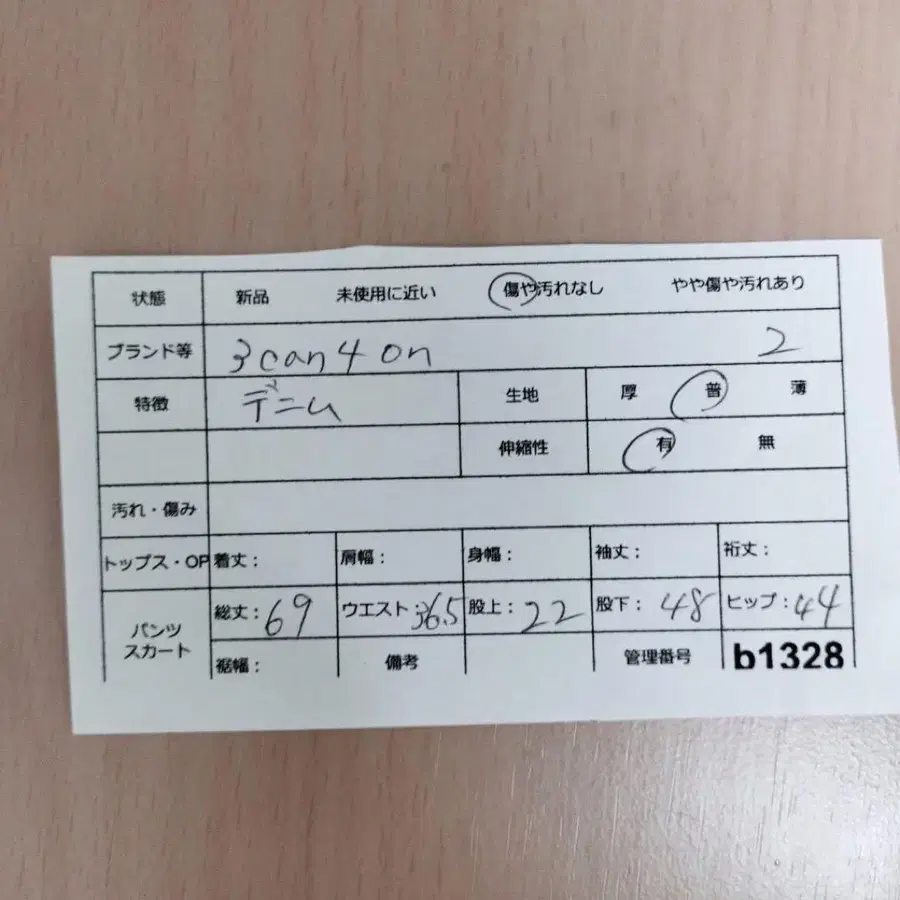 状態 新品 未使用に近い 傷や汚れなし やや傷や汚れあり
ブランド等 3can4on 2
特徴 デニム 生地 厚 普 薄
伸縮性 有 無
汚れ・傷み
トップス・OP 着丈: 肩幅: 身幅: 袖丈: 裄丈:
パンツ スカート 総丈:69 ウエスト:36.5 股上:22 股下:48 ヒップ:44
裾幅: 備考 管理番号 b1328